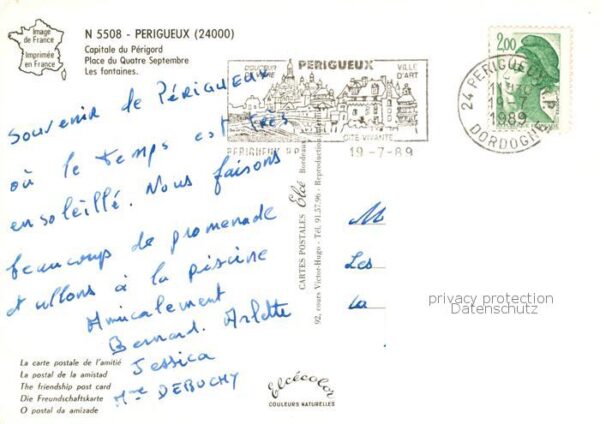 Image
de France
Imprimée
en France
N 5508 - PERIGUEUX (24000)
Capitale du Périgord
Place du Quatre Septembre
Les fontaines.
DOUCEUR
DE VIVRE
PERIGUEUX
VILLE
D'ART
CITE VIVANTE
PERIGUEUX R.P.
19-7-89
2,00
24 PERIGUEUX R.P.
19-7
1989
DORDOGNE
Souvenir de PÉRIGUEUX
où le temps est très
ensoleillé. Nous faisons
beaucoup de promenade
et allons à la piscine
Amicalement
Bernard. Arlette
Jessica
Mme DEBUCHY
CARTES POSTALES Elcé Bordeaux
92, cours Victor-Hugo - Tél. 91.57.96 - Reproduction
M
Les
la
privacy protection
Datenschutz
La carte postale de l'amitié
La postal de la amistad
The friendship post card
Die Freundschaftskarte
O postal da amizade
Elcécolor
COULEURS NATURELLES